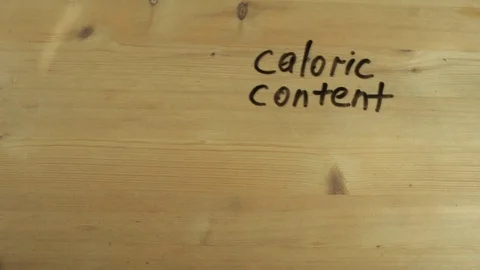 caloric
content